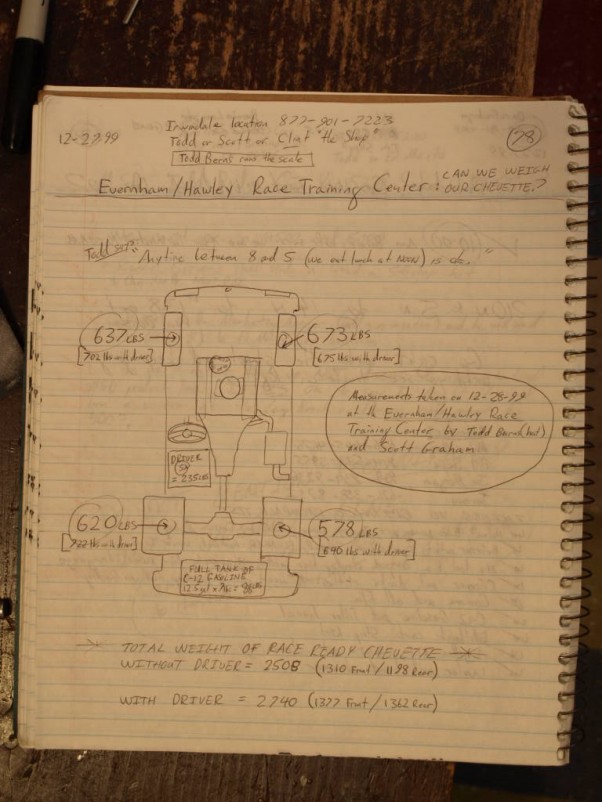 12-27-99
Irwindale location 877-901-7223
Todd or Scott or Clint "the Shop"
Todd runs the scale
(78)
Evernham/Hawley Race Training Center: CAN WE WEIGH
OUR CHEVETTE?
Todd says: "Anytime between 8 and 5 (we eat lunch at NOON) is ok."
637 LBS
[702 lbs with driver]
673 LBS
[675 lbs with driver]
Measurements taken on 12-28-99
at the Evernham/Hawley Race
Training Center by Todd
and Scott Graham
DRIVER
= 235 LBS
620 LBS
[722 lbs with driver]
578 LBS
[640 lbs with driver]
FULL TANK OF
C-12 GASOLINE
12.5 gal x
TOTAL WEIGHT OF RACE READY CHEVETTE
WITHOUT DRIVER = 2508 (1310 Front / 1198 Rear)
WITH DRIVER = 2740 (1377 Front / 1362 Rear)